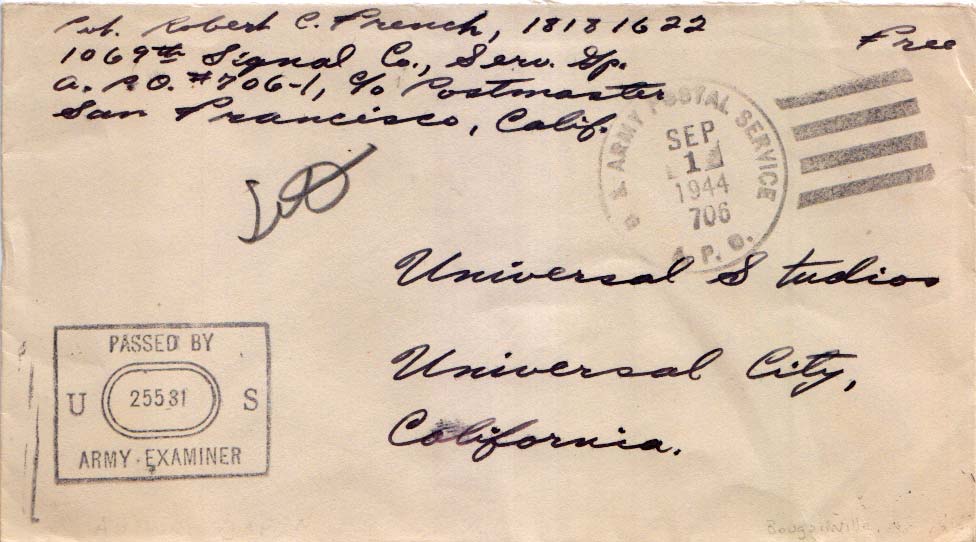 Pvt. Robert C. French, 18181622
1069th Signal Co., Serv. Gp.
A. P.O. #706-1, c/o Postmaster
San Francisco, Calif.
Free
U.S. ARMY POSTAL SERVICE
SEP
1
1944
706
A.P.O.
Universal Studios
Universal City,
California.
PASSED BY
U 25531 S
ARMY EXAMINER
Bougainville